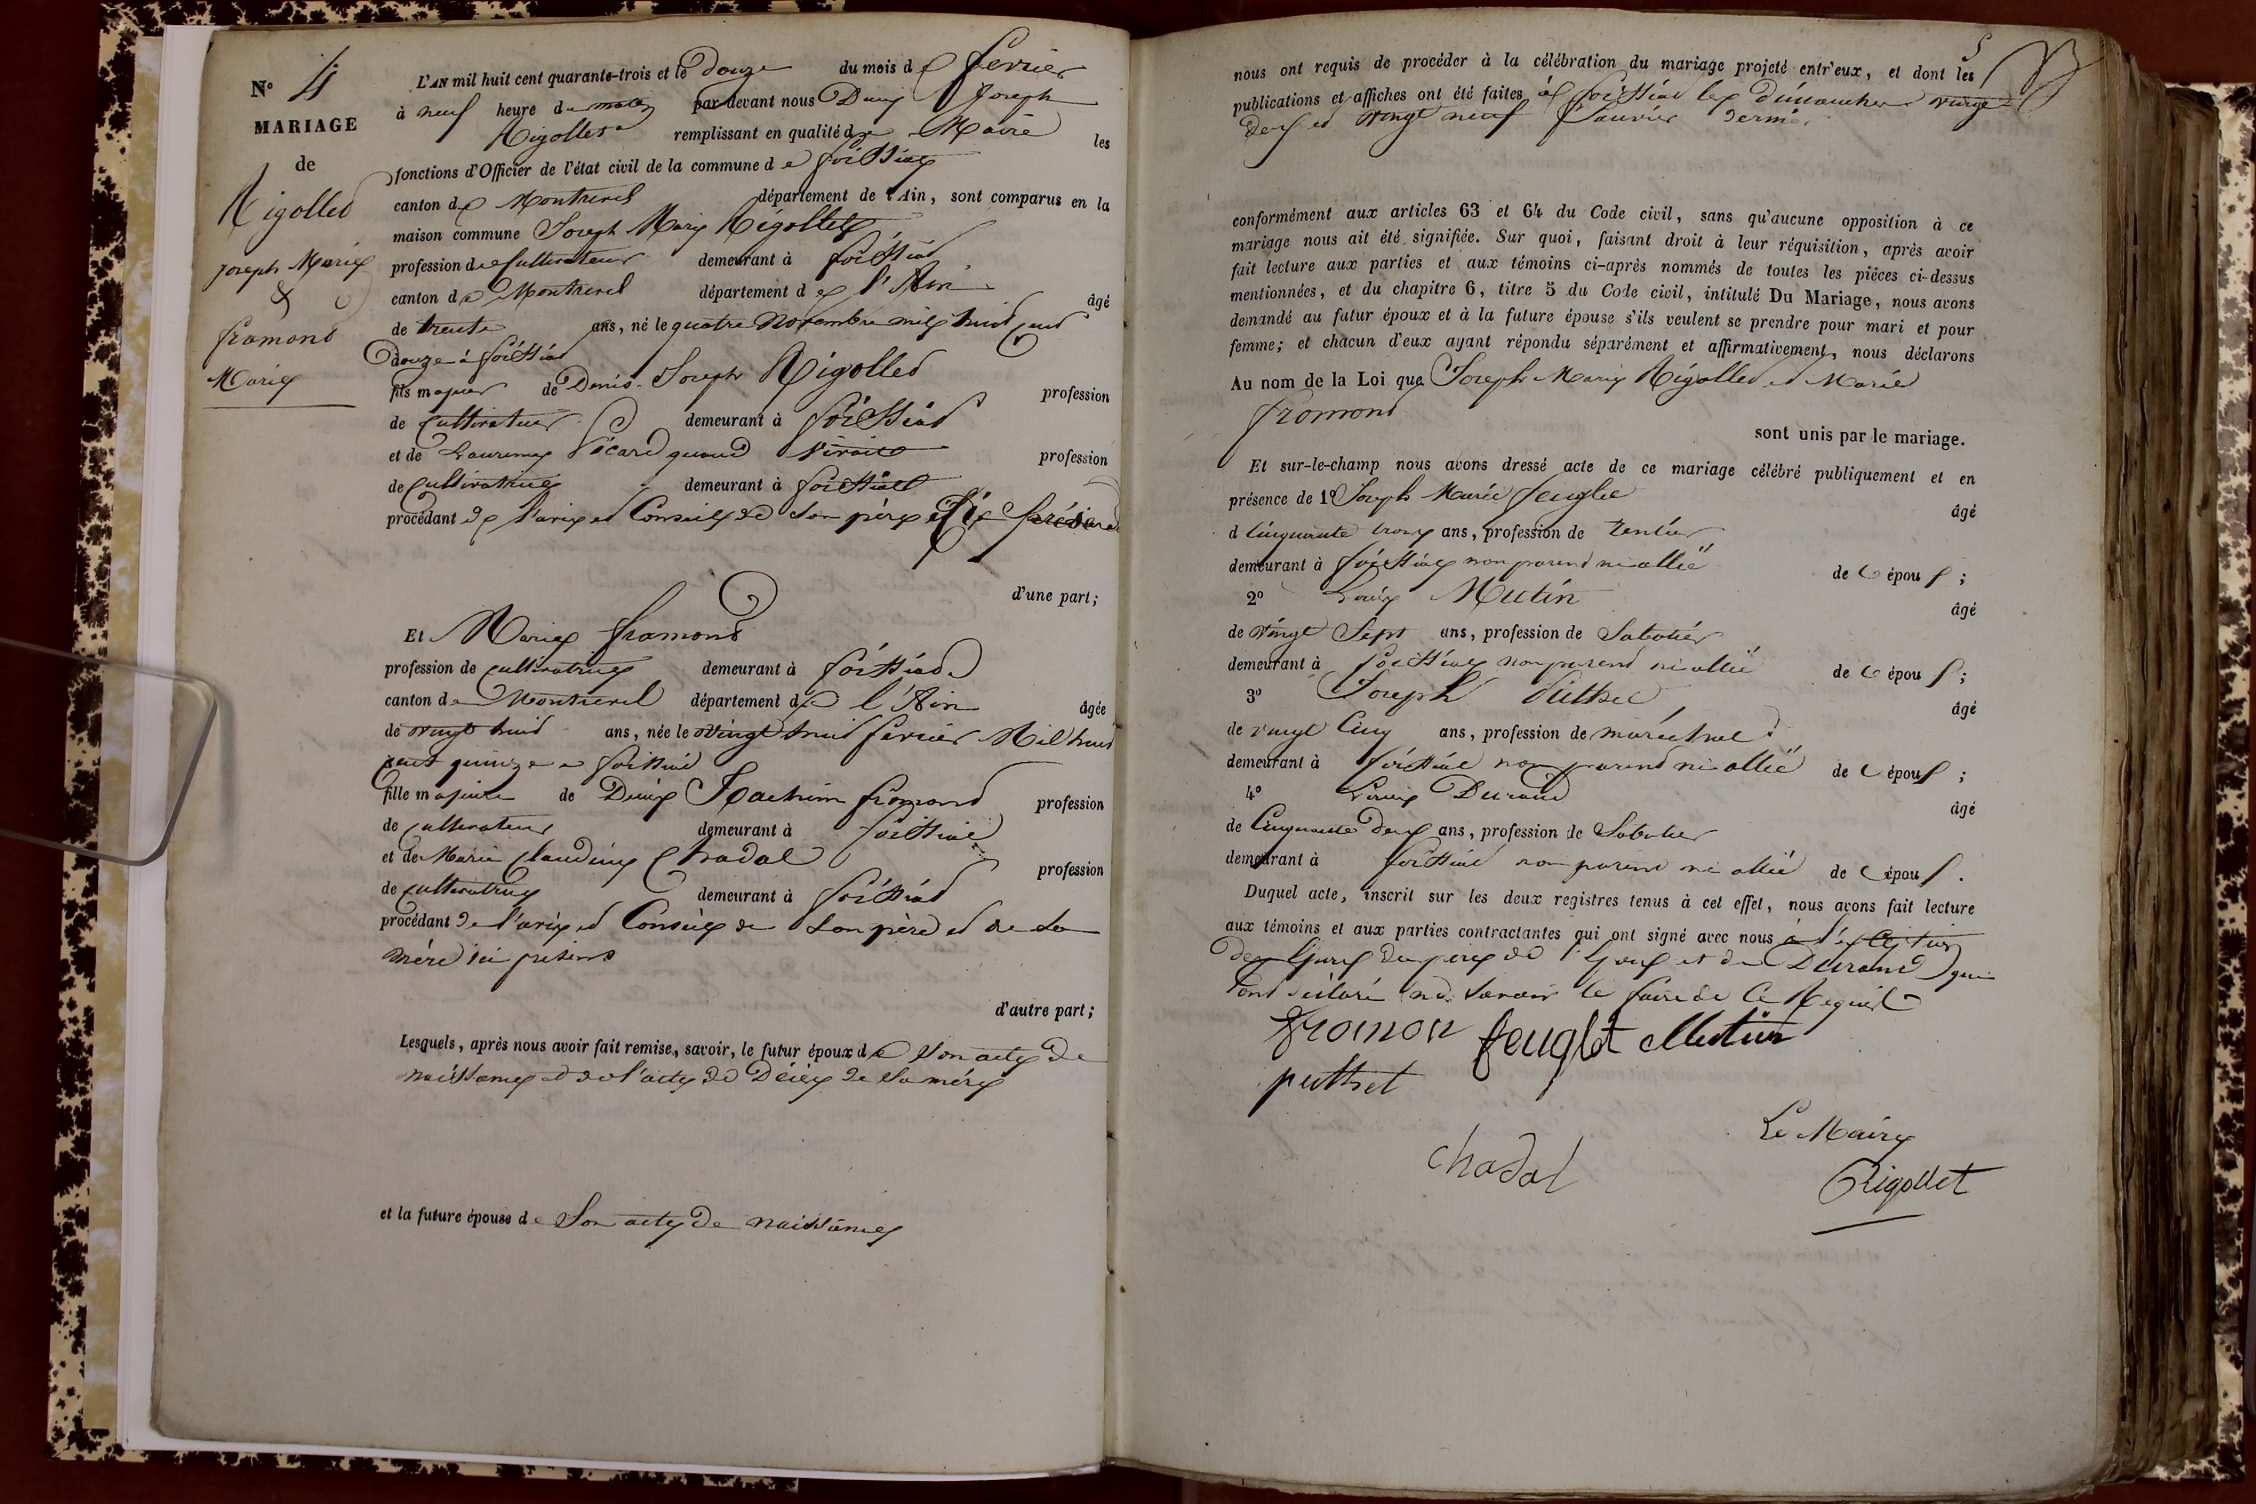 N° 4
MARIAGE
de
Rigollet
Joseph Marie
&
fromond
Marie
L'AN mil huit cent quarante-trois et le Douze du mois de fevrier
à neuf heure du matin par devant nous Denis Joseph
Rigollet remplissant en qualité de Maire les
fonctions d'Officier de l'état civil de la commune de foissiat
canton de Montrevel département de l'Ain, sont comparus en la
maison commune Joseph Marie Rigollet
profession de Cultivateur demeurant à foissiat
canton de Montrevel département de l'Ain âgé
de trente ans, né le quatre Novembre mil huit cent
Douze à foissiat
fils majeur de Denis-Joseph Rigollet profession
de Cultivateur demeurant à foissiat
et de quand vivait profession
de Cultivatrice demeurant à foissiat
procédant de l'avis et Conseil de Son père ici présent
d'une part;
Et Marie fromond
profession de cultivatrice demeurant à foissiat
canton de Montrevel département de l'Ain âgée
de vingt huit ans, née le vingt huit fevrier Mil huit
cent quinze a foissiat
fille majeure de Denis Joachim fromond profession
de cultivateur demeurant à foissiat
et de Marie Claudine Chadal profession
de cultivatrice demeurant à foissiat
procédant de l'avis et Conseil de Son père et de Sa
mère ici présents
d'autre part;
Lesquels, après nous avoir fait remise, savoir, le futur époux de Son acte de
naissance et de l'acte de Décès de Sa mère
et la future épouse de Son acte de naissance
5
nous ont requis de procéder à la célébration du mariage projeté entr'eux, et dont les
publications et affiches ont été faites à foissiat les dimanches vingt
deux et vingt neuf Janvier dernier
conformément aux articles 63 et 64 du Code civil, sans qu'aucune opposition à ce
mariage nous ait été signifiée. Sur quoi, faisant droit à leur réquisition, après avoir
fait lecture aux parties et aux témoins ci-après nommés de toutes les pièces ci-dessus
mentionnées, et du chapitre 6, titre 5 du Code civil, intitulé Du Mariage, nous avons
demandé au futur époux et à la future épouse s'ils veulent se prendre pour mari et pour
femme; et chacun d'eux ayant répondu séparément et affirmativement, nous déclarons
Au nom de la Loi que Joseph Marie Rigollet et Marie
fromond
sont unis par le mariage.
Et sur-le-champ nous avons dressé acte de ce mariage célébré publiquement et en
présence de 1° Joseph Marie feuglet âgé
d Cinquante trois ans, profession de Rentier
demeurant à foissiat non parent ni allié de l'époux;
2° Louis Mutin âgé
de vingt Sept ans, profession de Sabotier
demeurant à foissiat non parent ni allié de l'époux;
3° Joseph Puthet âgé
de vingt Cinq ans, profession de maréchal
demeurant à foissiat non parent ni allié de l'époux;
4° Louis Durand âgé
de Cinquante deux ans, profession de Sabotier
demeurant à foissiat non parent ni allié de l'époux.
Duquel acte, inscrit sur les deux registres tenus à cet effet, nous avons fait lecture
aux témoins et aux parties contractantes qui ont signé avec nous à l'exception
des époux du père de l'époux et de Durand qui
ont déclaré ne Savoir le faire de Ce Requis
fromon feuglet Mutin
puthet
chadal
Le Maire
Rigollet